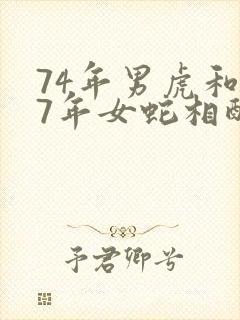 74年男虎和
7年女蛇相配
予君卿兮